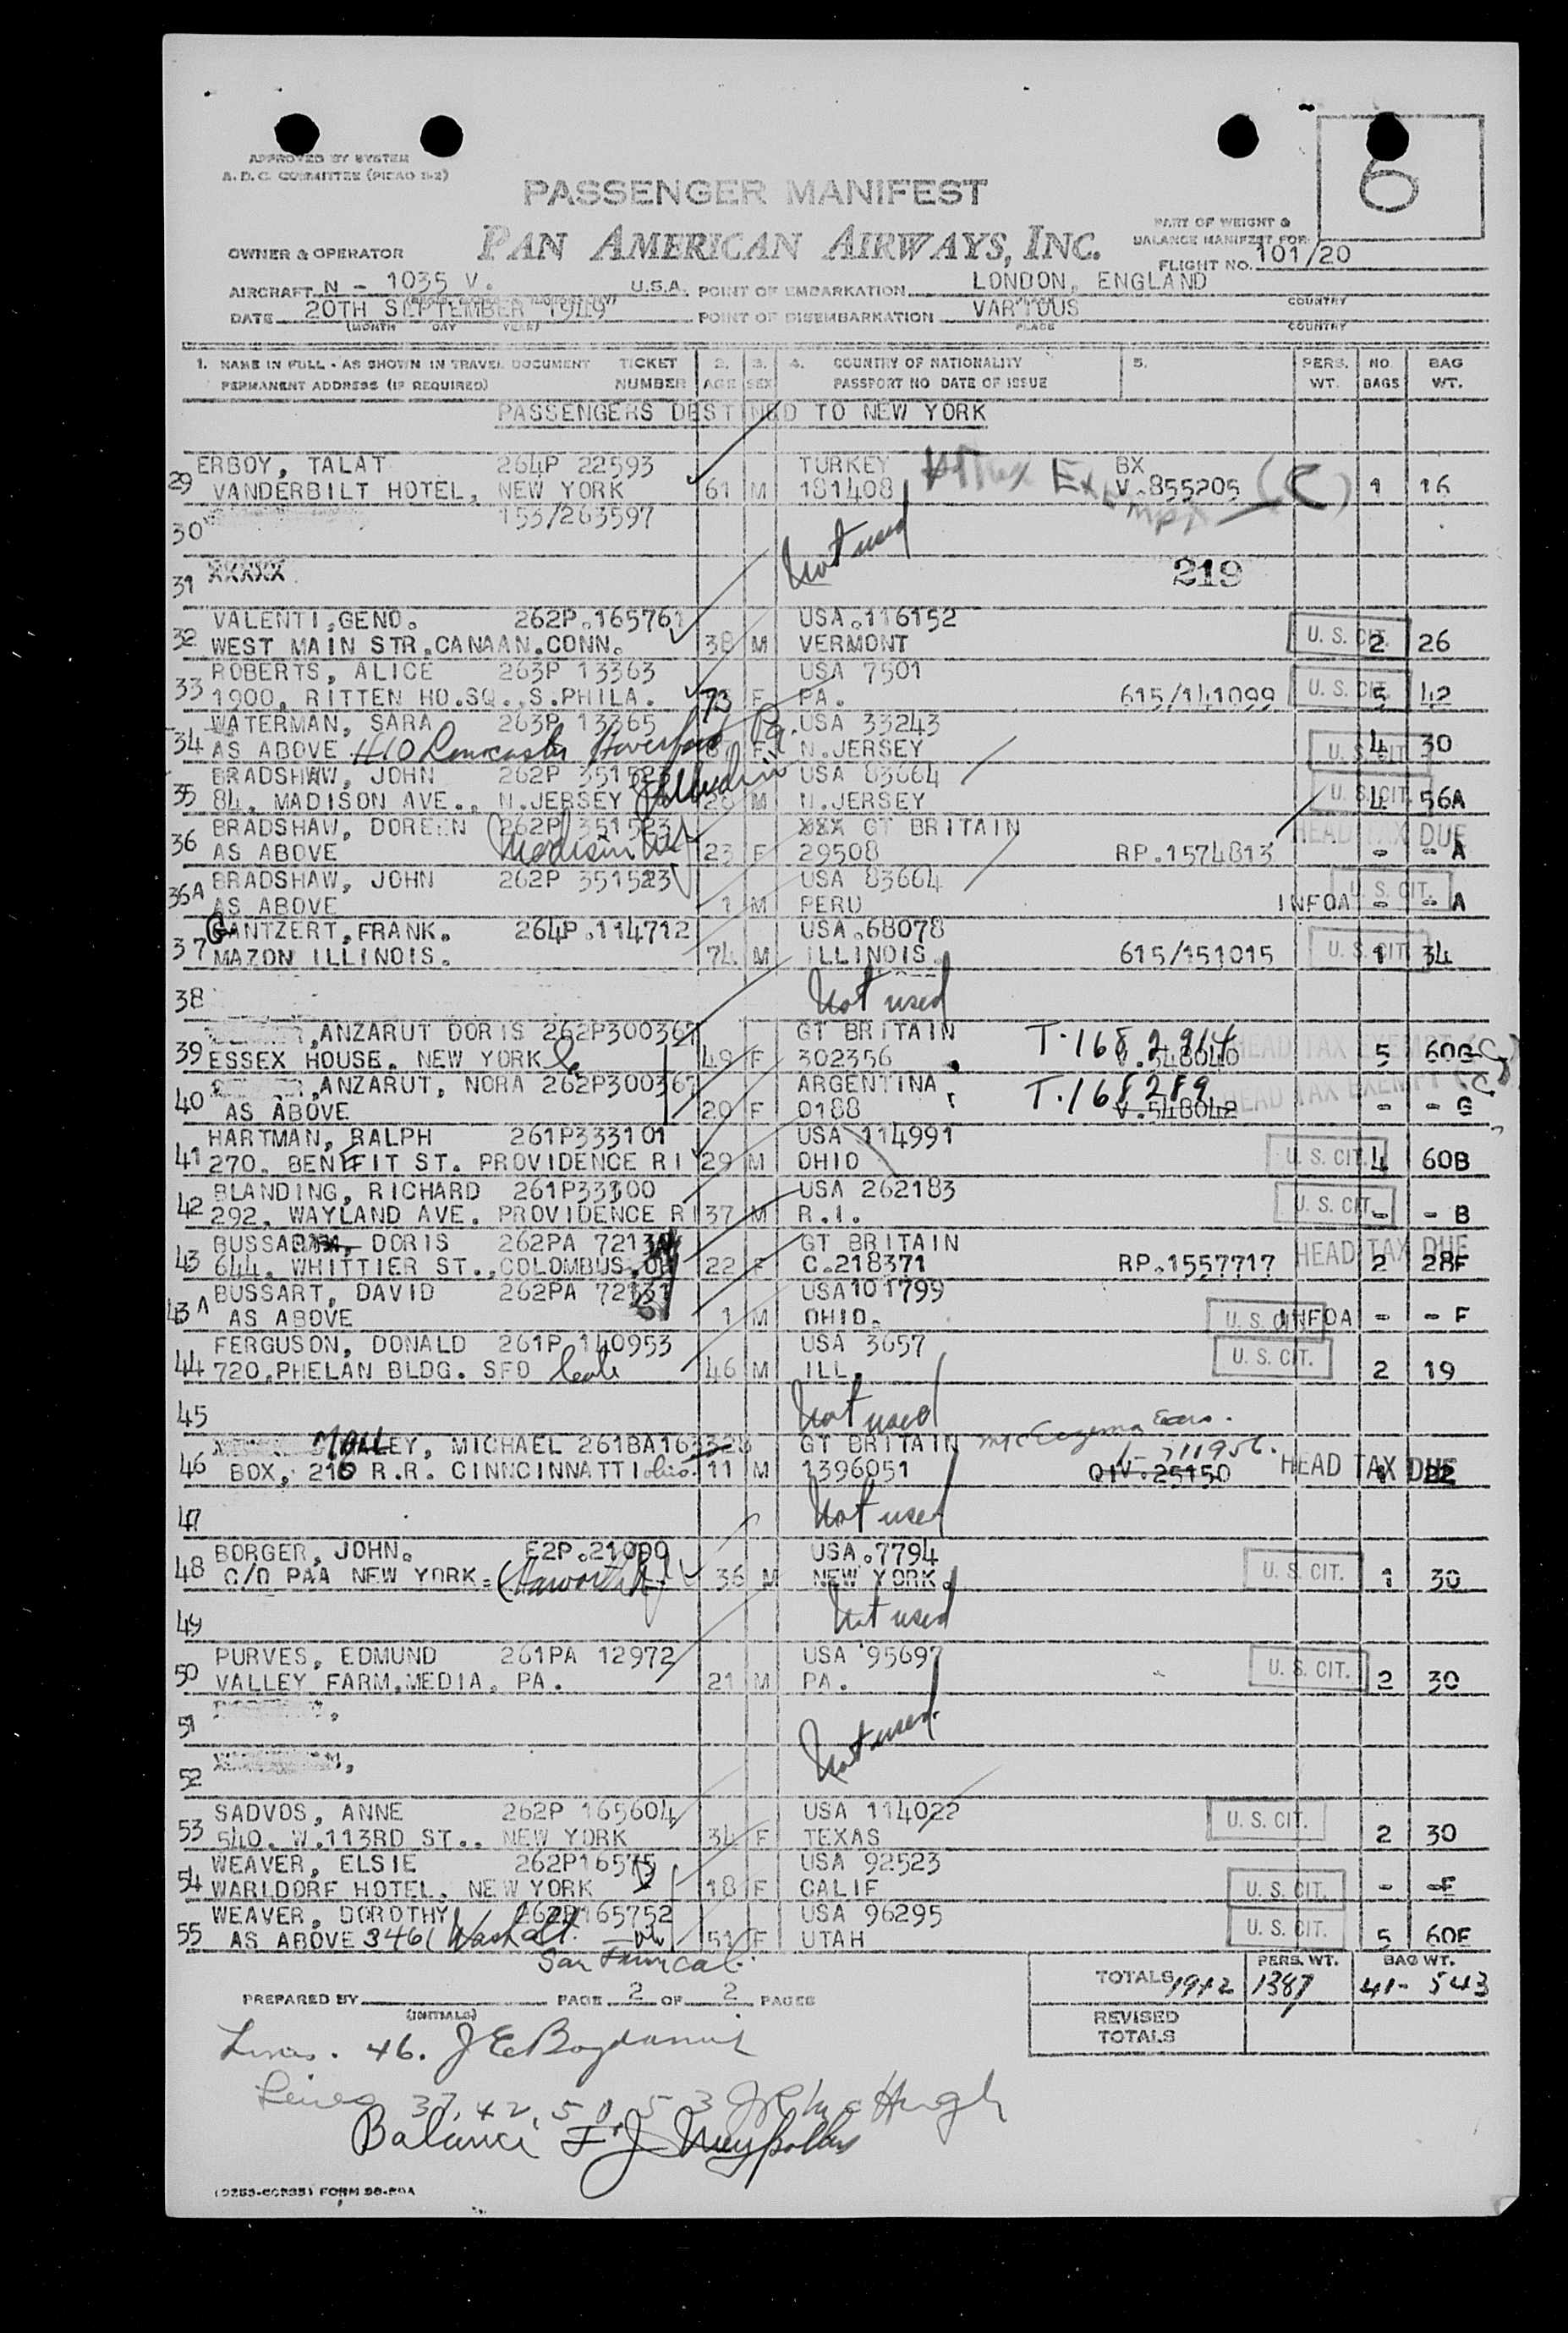 APPROVED BY SYSTEM
A. D. C. COMMITTEE (PICAO 2-2)
6
PASSENGER MANIFEST
PAN AMERICAN AIRWAYS, INC.
PART OF WEIGHT &
BALANCE MANIFEST FOR
FLIGHT NO. 101/20
OWNER & OPERATOR
AIRCRAFT N - 1035 V. U.S.A. POINT OF EMBARKATION LONDON, ENGLAND
DATE 20TH SEPTEMBER 1949 POINT OF DISEMBARKATION VARIOUS
(MONTH DAY YEAR) PLACE COUNTRY
1. NAME IN FULL - AS SHOWN IN TRAVEL DOCUMENT TICKET 2. 3. 4. COUNTRY OF NATIONALITY 5. PERS. NO BAG
PERMANENT ADDRESS (IF REQUIRED) NUMBER AGE SEX PASSPORT NO DATE OF ISSUE WT. BAGS WT.
PASSENGERS DESTINED TO NEW YORK
ERBOY, TALAT 264P 22593 TURKEY BX
29 VANDERBILT HOTEL, NEW YORK 61 M 181408 V.855205 (C) 1 16
153/263597
30 Not used
31 XXXXX 219
VALENTI,GENO. 262P.165761 USA.116152
32 WEST MAIN STR.CANAAN.CONN. 38 M VERMONT U. S. CIT. 2 26
ROBERTS, ALICE 263P 13363 USA 7501
33 1900, RITTEN HO.SQ.,S.PHILA. 73 F PA. 615/141099 U. S. CIT. 5 42
WATERMAN, SARA 263P 13365 USA 33243
34 AS ABOVE 410 Lancaster Haverford Pa. F N.JERSEY U. S. CIT. 4 30
BRADSHAW, JOHN 262P 351523 USA 83664
35 84, MADISON AVE., N.JERSEY 26 M N.JERSEY U. S. CIT. 4 56A
BRADSHAW, DOREEN 262P 351523 XXX GT BRITAIN HEAD TAX DUE
36 AS ABOVE Madison 23 F 29508 RP.1574813 - - A
BRADSHAW, JOHN 262P 351523 USA 83664 U. S. CIT.
36A AS ABOVE 1 M PERU INFOA - - A
GANTZERT,FRANK. 264P.114712 USA.68078
37 MAZON ILLINOIS. 74 M ILLINOIS. 615/151015 U. S. CIT. 1 34
38 Not used
,ANZARUT DORIS 262P300367 GT BRITAIN T.1682914 HEAD TAX EXEMPT (C)
39 ESSEX HOUSE. NEW YORK 49 F 302356 V.548040 5 60G
,ANZARUT, NORA 262P300367 ARGENTINA T.168289 HEAD TAX EXEMPT (C)
40 AS ABOVE 20 F 0188 V.548042 - - G
HARTMAN, RALPH 261P333101 USA 114991
41 270. BENEFIT ST. PROVIDENCE RI 29 M OHIO U. S. CIT. 4 60B
BLANDING, RICHARD 261P33300 USA 262183
42 292. WAYLAND AVE. PROVIDENCE RI 37 M R.I. U. S. CIT. - - B
DORIS 262PA GT BRITAIN HEAD TAX DUE
43 644. WHITTIER ST.,COLOMBUS 22 F C.218371 RP.1557717 2 28F
BUSSART, DAVID 262PA 72131 USA101799
43A AS ABOVE 1 M OHIO. U. S. CIT. INFOA - - F
FERGUSON, DONALD 261P 140953 USA 3657
44 720.PHELAN BLDG. SFO 46 M ILL. U. S. CIT. 2 19
45 Not used
MALLEY, MICHAEL GT BRITAIN
46 BOX, 216 R.R. CINNCINNATTI Ohio. 11 M 1396051 QIV.25150 HEAD TAX DUE 1 22
47 Not used
BORGER, JOHN. E2P.21090 USA.7794
48 C/O PAA NEW YORK. 36 M NEW YORK. U. S. CIT. 1 30
49 Not used
PURVES, EDMUND 261PA 12972 USA 95697
50 VALLEY FARM.MEDIA. PA. 21 M PA. U. S. CIT. 2 30
51
52 Not used
SADVOS, ANNE 262P 165604 USA 114022
53 540. W.113RD ST.. NEW YORK 34 F TEXAS U. S. CIT. 2 30
WEAVER, ELSIE USA 92523
54 WARLDORF HOTEL. NEW YORK 18 F CALIF U. S. CIT. - -E
WEAVER, DOROTHY 262P165752 USA 96295
55 AS ABOVE 3461 Wash St. 51 F UTAH U. S. CIT. 5 60E
San Fran Cal.
PREPARED BY (INITIALS) PAGE 2 OF 2 PAGES
PERS. WT. BAG WT.
TOTALS 1942 1387 41- 543
REVISED
TOTALS
Lines. 46.
Lines 37, 42, 50, 53
Balance